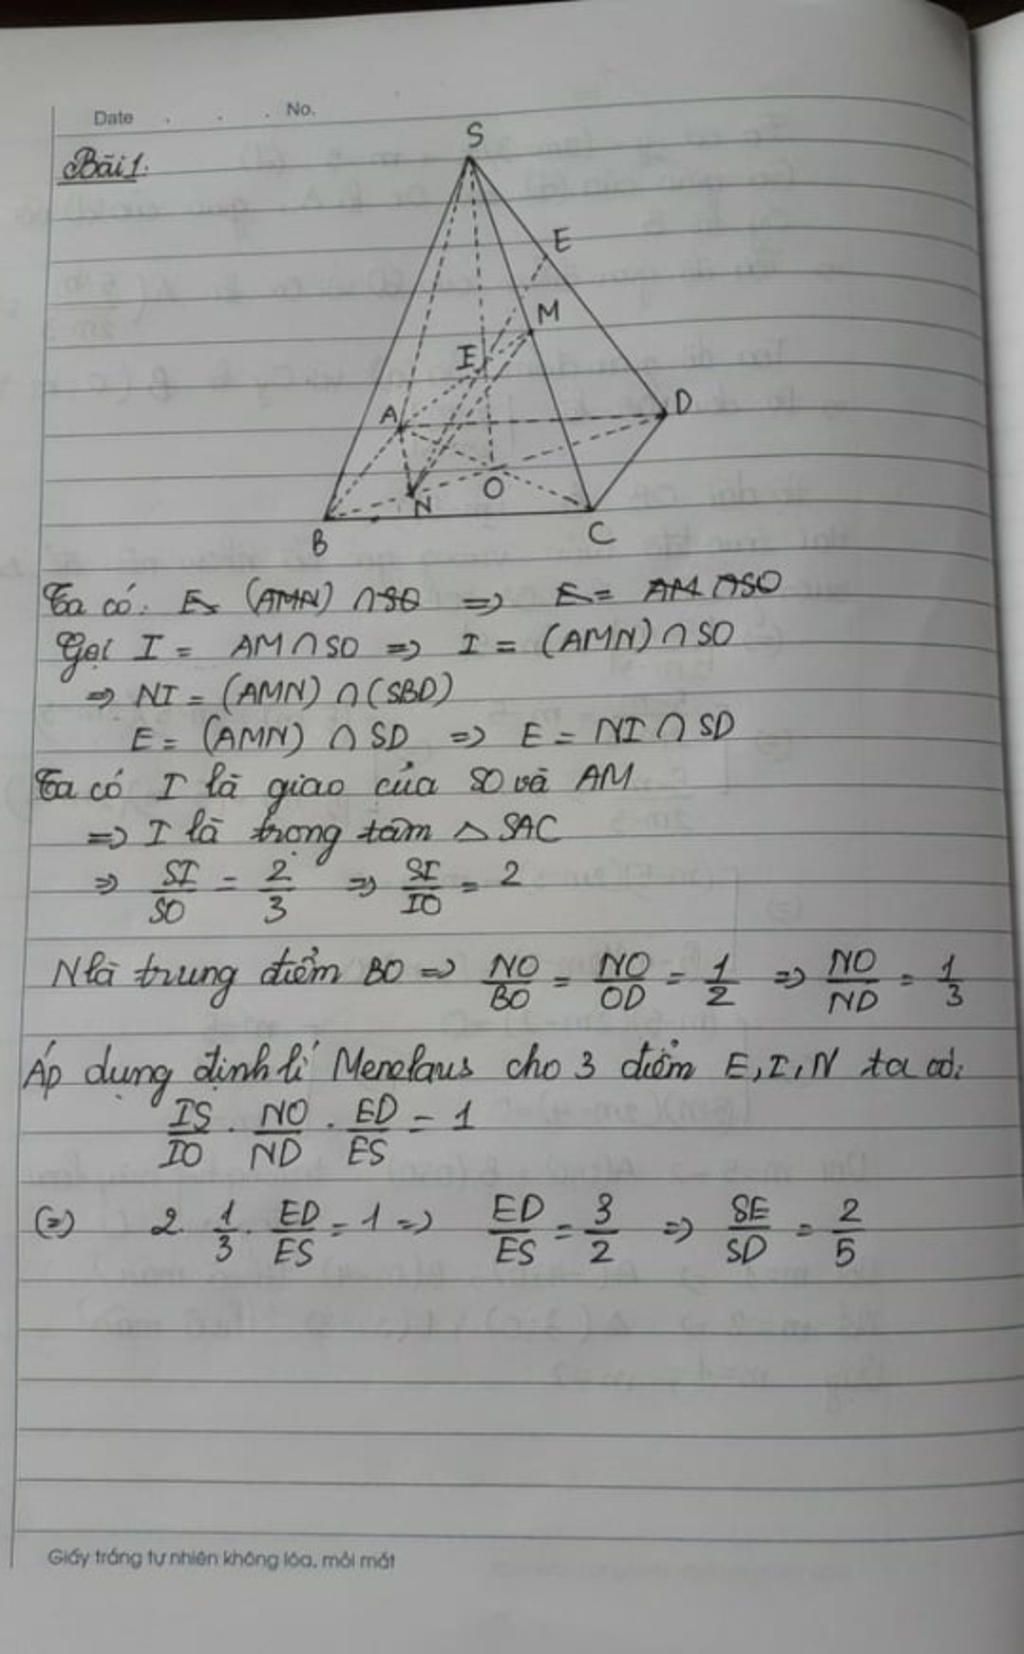 Date . . . No.
Bài 1.
S
E
M
I
A
D
O
N
B
C
Ta có: E = (AMN) ∩ SO => E = AM ∩ SO
Gọi I = AM ∩ SO => I = (AMN) ∩ SO
=> NI = (AMN) ∩ (SBD)
E = (AMN) ∩ SD => E = NI ∩ SD
Ta có I là giao của SO và AM
=> I là trọng tâm △ SAC
=> SI/SO = 2/3 => SI/IO = 2
N là trung điểm BO => NO/BO = NO/OD = 1/2 => NO/ND = 1/3
Áp dụng định lí Menelaus cho 3 điểm E, I, N ta có:
IS/IO . NO/ND . ED/ES = 1
(=) 2. 1/3 . ED/ES = 1 => ED/ES = 3/2 => SE/SD = 2/5
Giấy trắng tự nhiên không lóa, mỏi mắt